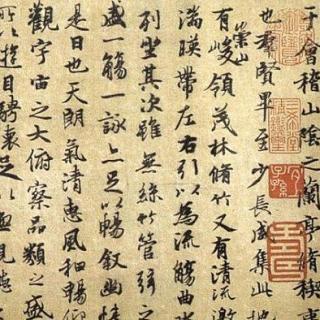 于會稽山陰之蘭亭脩稧
也羣賢畢至少長咸集此地
有崇山峻領茂林脩竹又有清流激
湍暎帶左右引以為流觴曲水
列坐其次雖無絲竹管弦之
盛一觴一詠亦足以暢敘幽情
是日也天朗氣清惠風和暢仰
觀宇宙之大俯察品類之盛
所以遊目騁懷足以極視聽